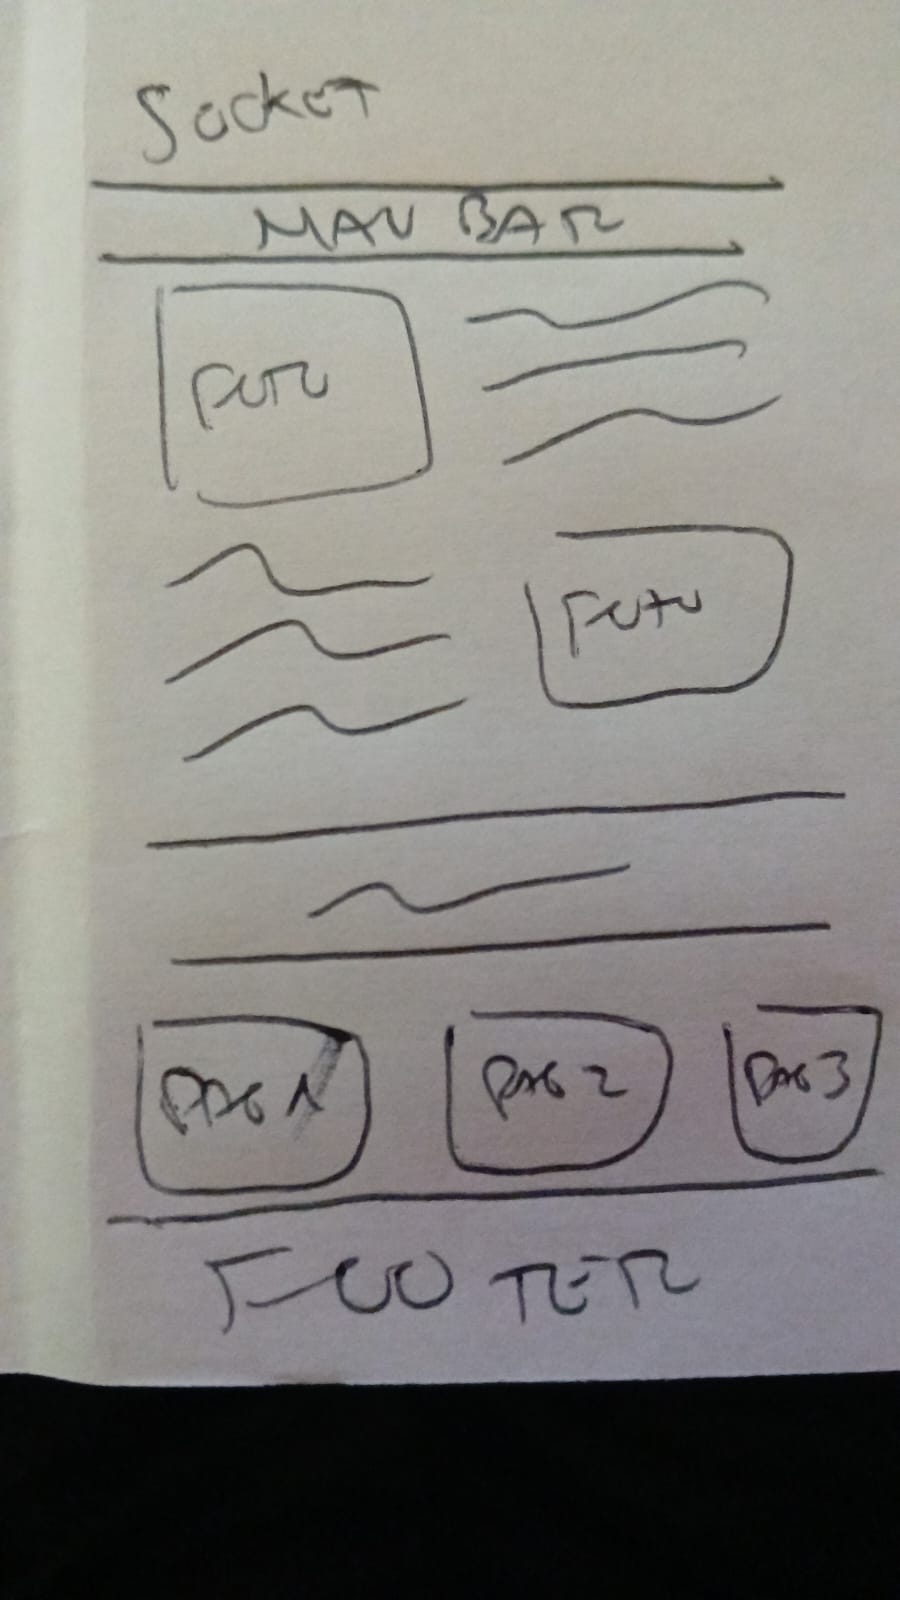 Socket
NAV BAR
FOTO
FOTO
PAG 1
PAG 2
PAG 3
FOOTER